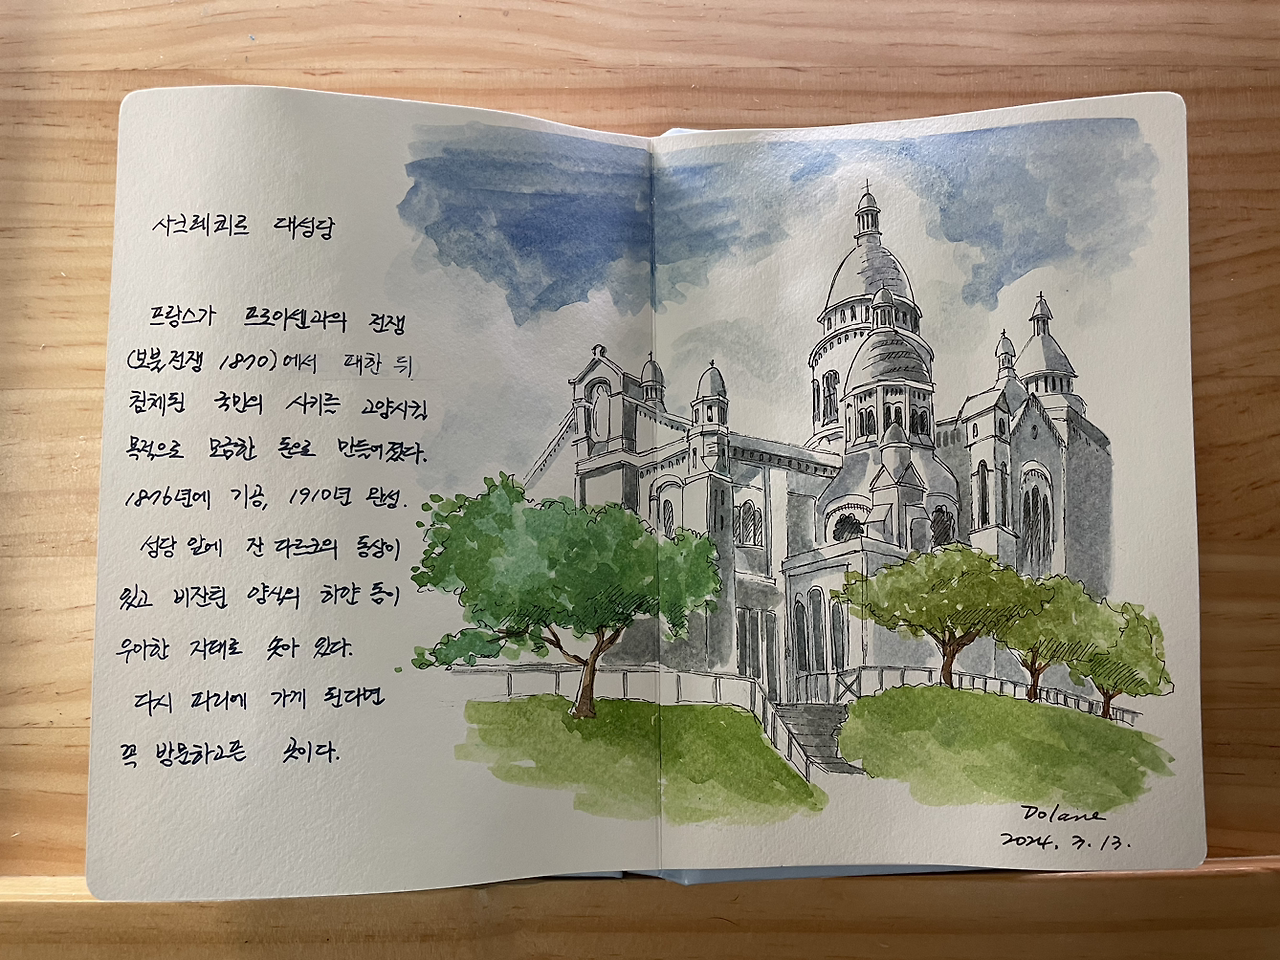 사크레쾨르 대성당
프랑스가 프로이센과의 전쟁
(보불전쟁 1870)에서 패한 뒤
침체된 국민의 사기를 고양시킬
목적으로 모금한 돈으로 만들어졌다.
1876년에 기공, 1910년 완성.
성당 앞에 잔다르크의 동상이
있고 비잔틴 양식의 하얀 돔이
우아한 자태로 솟아 있다.
다시 파리에 가게 된다면
꼭 방문하고픈 곳이다.
Dolane
2024. 3. 13.